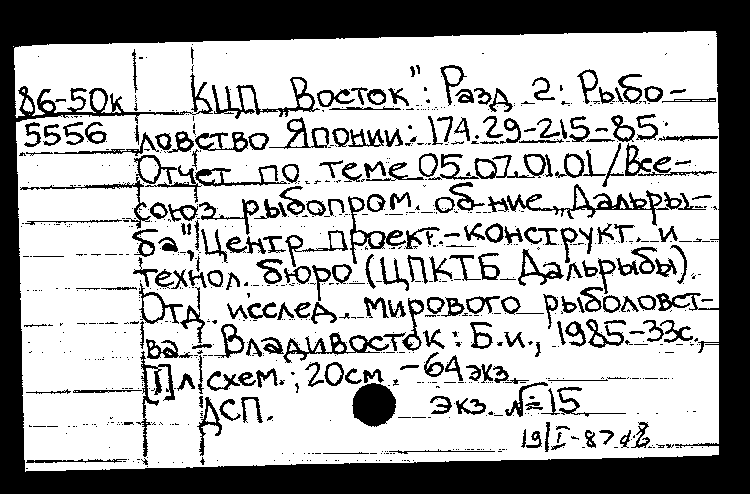 86-50к
5556
КЦП „Восток": Разд 2: Рыбо-
ловство Японии: 174.29-215-85:
Отчет по теме 05.07.01.01/Все-
союз. рыбопром. об-ние „Дальры-
ба", Центр проект.-конструкт. и
технол. бюро (ЦПКТБ Дальрыбы).
Отд. исслед. мирового рыболовст-
ва. - Владивосток: Б.и., 1985.-33с.,
[1] л. схем.; 20см. -64экз.
ДСП. экз. №=15.
19/I-87